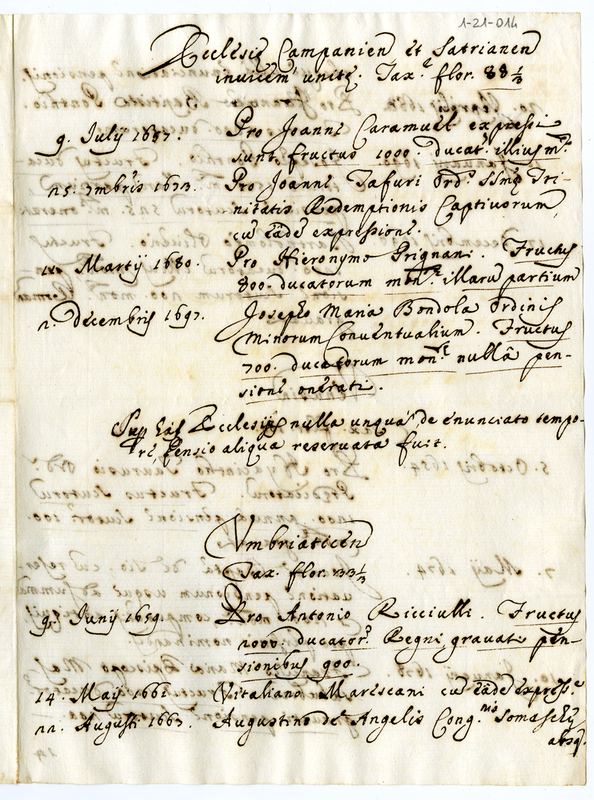 1-21-014
Ecclesię Campanien et Satrianen
invicem unitę. Tax.ᵉ flor. 88 1/3
9. Julij 1657. Pro Joanne Caramuel expressi
sunt fructus 1000. ducat. illius m.ᵗᵉ
25. 7mbris 1673. Pro Joanne Tafuri Ord.ˢ SSmę Tri-
nitatis Redemptionis Captivorum,
cū eādē expressione.
Martij 1680. Pro Hieronymo Prignani. Fructus
800. ducatorum mon.ᵗᵉ illarū partium
2. Decembris 1697. Josepho Maria Bondola Ordinis
Minorum Conventualium. Fructus
700. ducatorum mon.ᵗᵉ nullâ pen-
sione onerati.
Ecclesijs nulla unquā, de enunciato tempo-
re, pensio aliqua reservata fuit.
Umbriaticen
Tax. flor. 33 1/3
9. Junij 1659. Pro Antonio Ricciulli. Fructus
2000. ducator. Regni gravat. pen-
sionibus 900.
14. May 1661. Vitaliano Marescani cū eādē express.ᵉ
22. Augusti 1663. Augustino de Angelis Cong.ⁿⁱˢ Somaschę
absq.